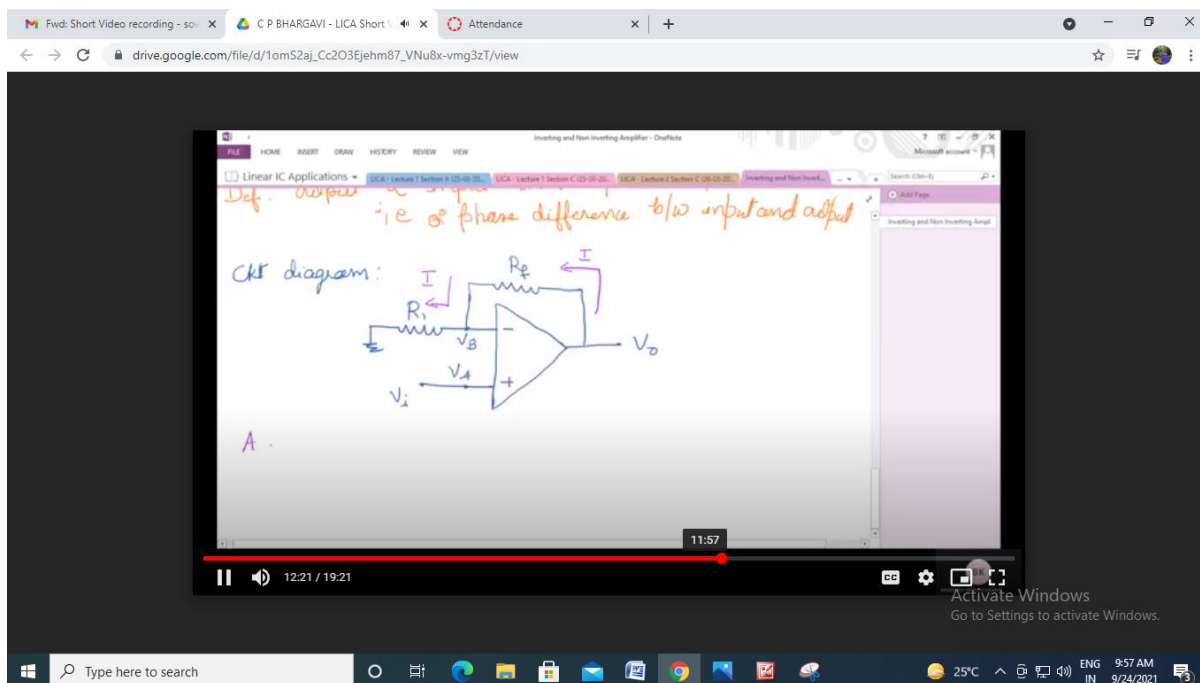 Fwd: Short Video recording - sow
C P BHARGAVI - LICA Short
Attendance
drive.google.com/file/d/1omS2aj_Cc2O3Ejehm87_VNu8x-vmg3zT/view
Inverting and Non Inverting Amplifier - OneNote
FILE HOME INSERT DRAW HISTORY REVIEW VIEW
Microsoft account
Linear IC Applications
LICA - Lecture 1 Section A (25-03-20... LICA - Lecture 1 Section C (25-03-20... LICA - Lecture 2 Section C (26-03-20... Inverting and Non Invert...
Search (Ctrl+E)
Add Page
Inverting and Non Inverting Ampl
Def: output & input
i,e 0° phase difference b/w input and output
Ckt diagram:
I
Rf
I
R1
VB
-
Vo
VA
+
Vi
A
11:57
12:21 / 19:21
CC
Activate Windows
Go to Settings to activate Windows.
Type here to search
25°C
ENG
IN
9:57 AM
9/24/2021
3